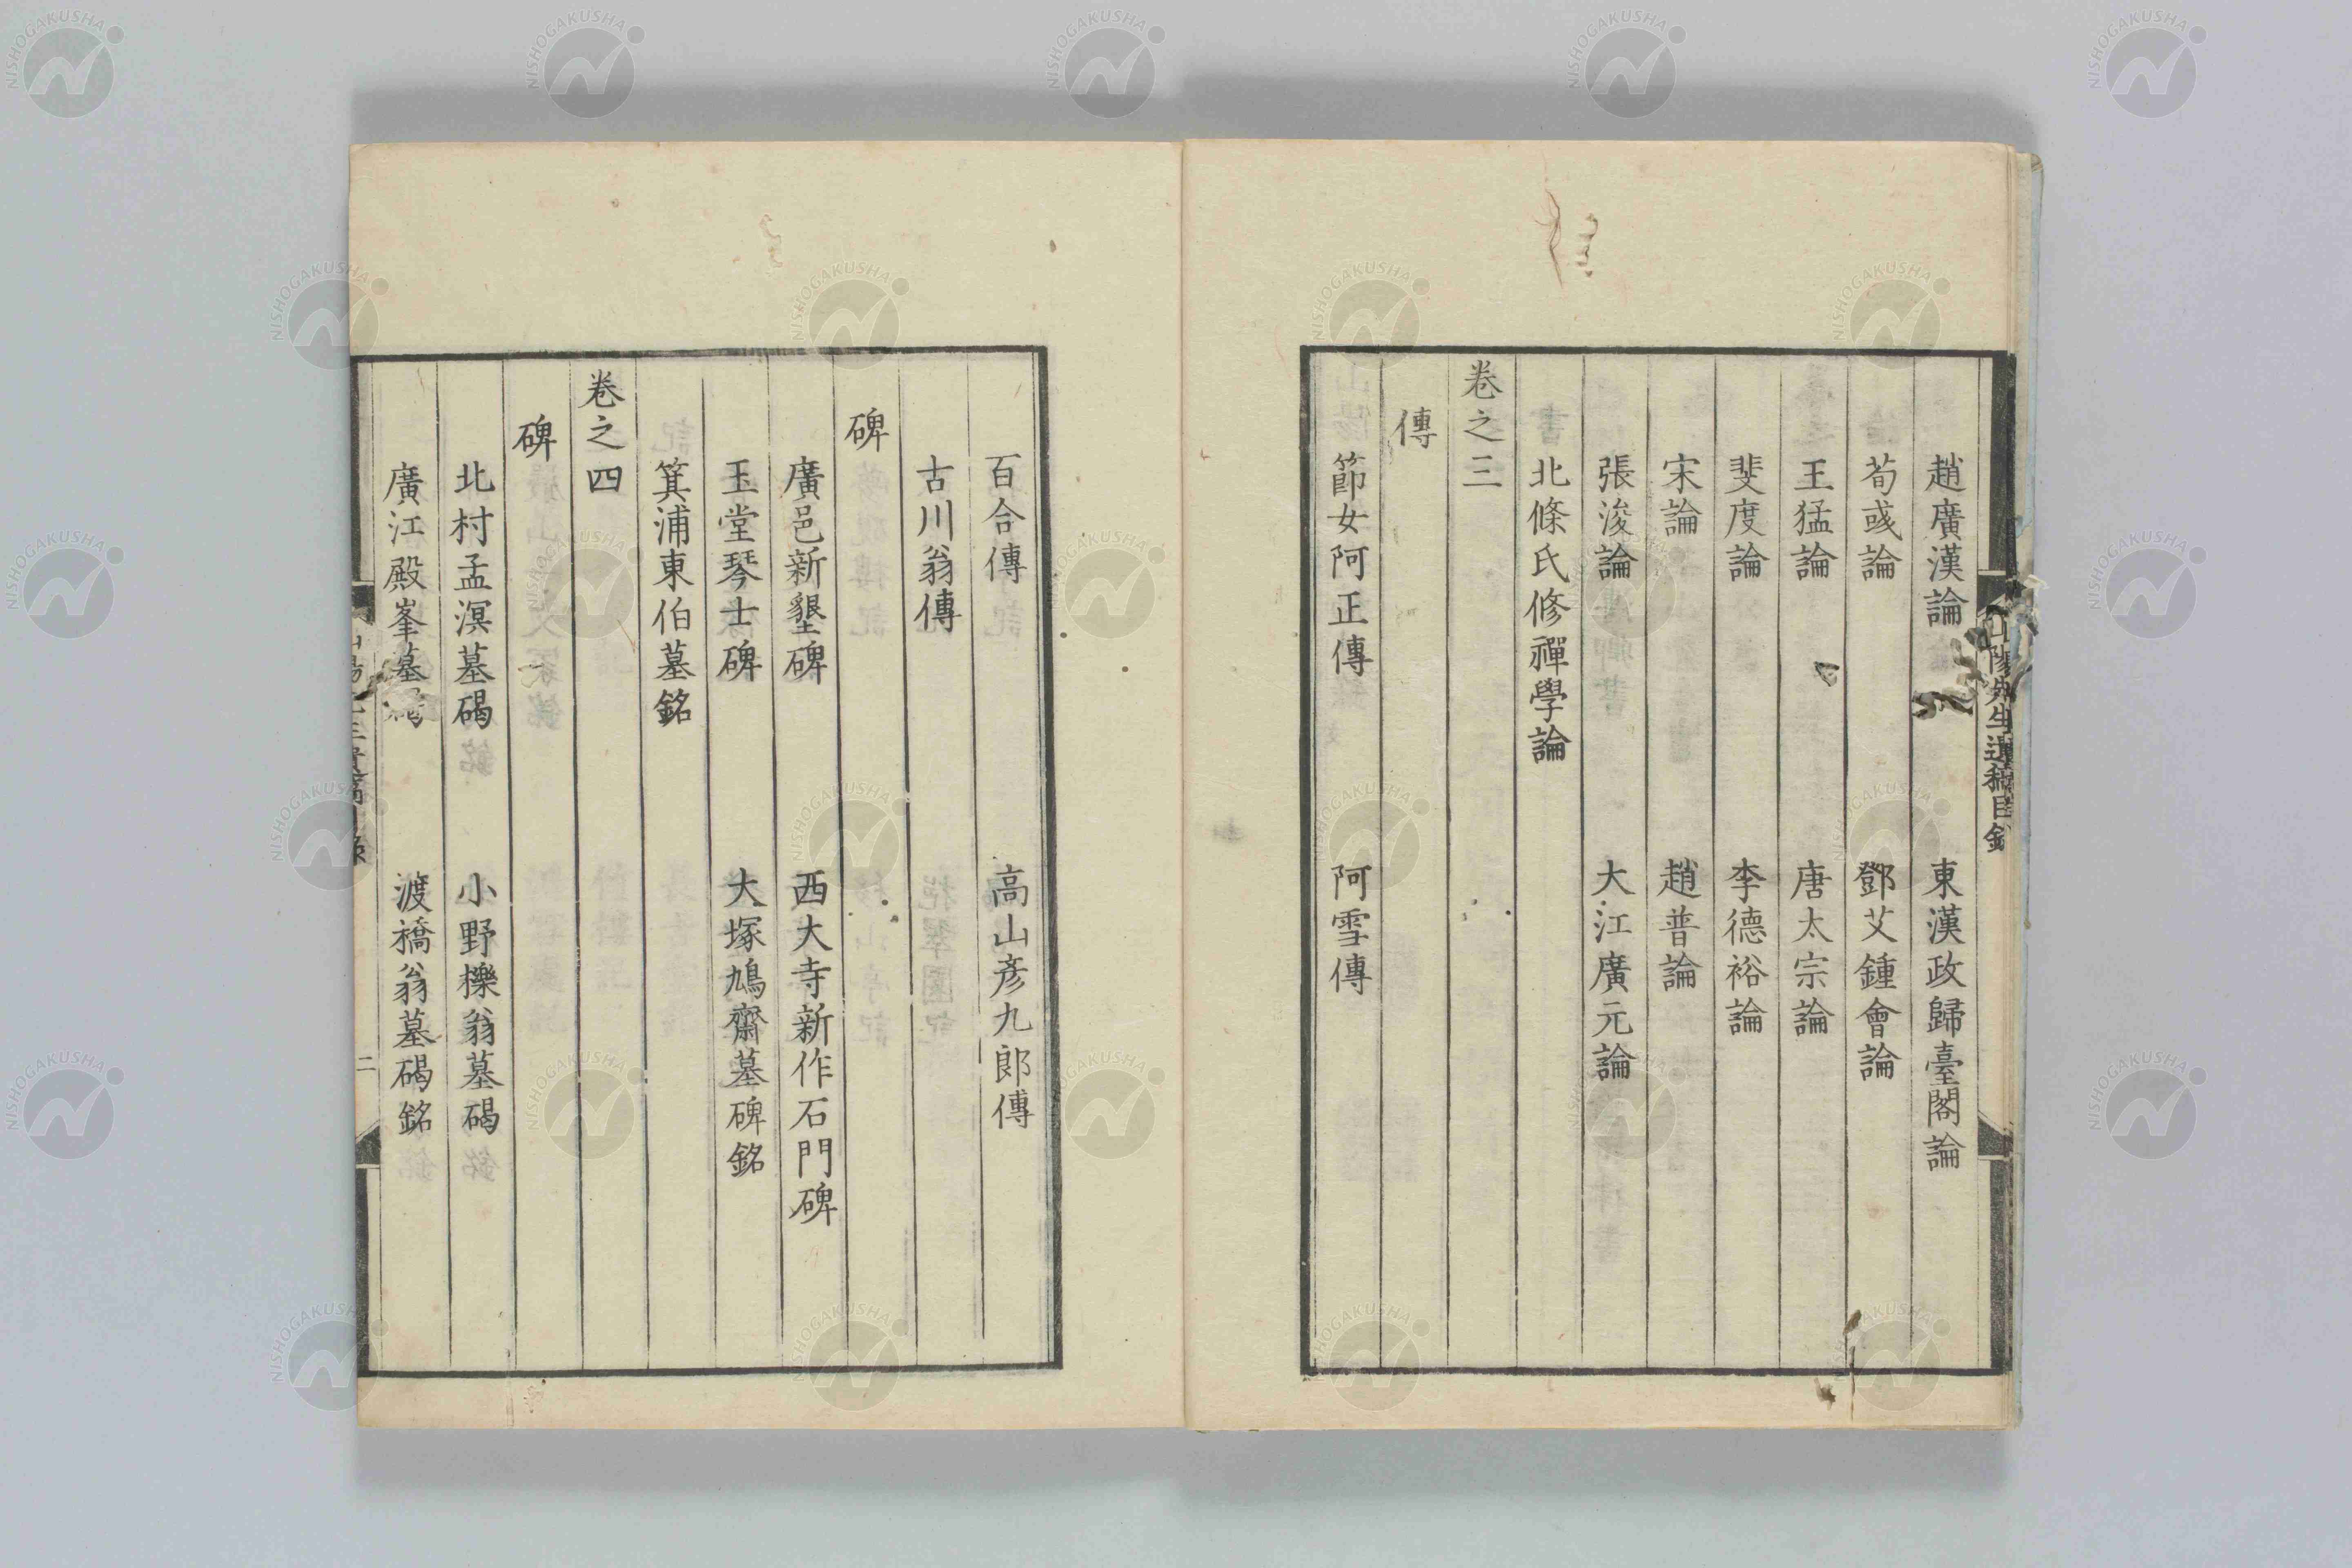 趙廣漢論　東漢政歸臺閣論
荀彧論　鄧艾鍾會論
王猛論　唐太宗論
斐度論　李德裕論
宋論　趙普論
張浚論　大江廣元論
北條氏修禪學論
卷之三
傳
節女阿正傳　阿雪傳
百合傳　高山彥九郎傳
古川翁傳
碑
廣邑新墾碑　西大寺新作石門碑
玉堂琴士碑　大塚鳩齋墓碑銘
箕浦東伯墓銘
卷之四
碑
北村孟溟墓碣　小野櫟翁墓碣
廣江殿峯墓碣　渡橋翁墓碣銘
山陽先生遺稿目錄
二
NISHOGAKUSHA